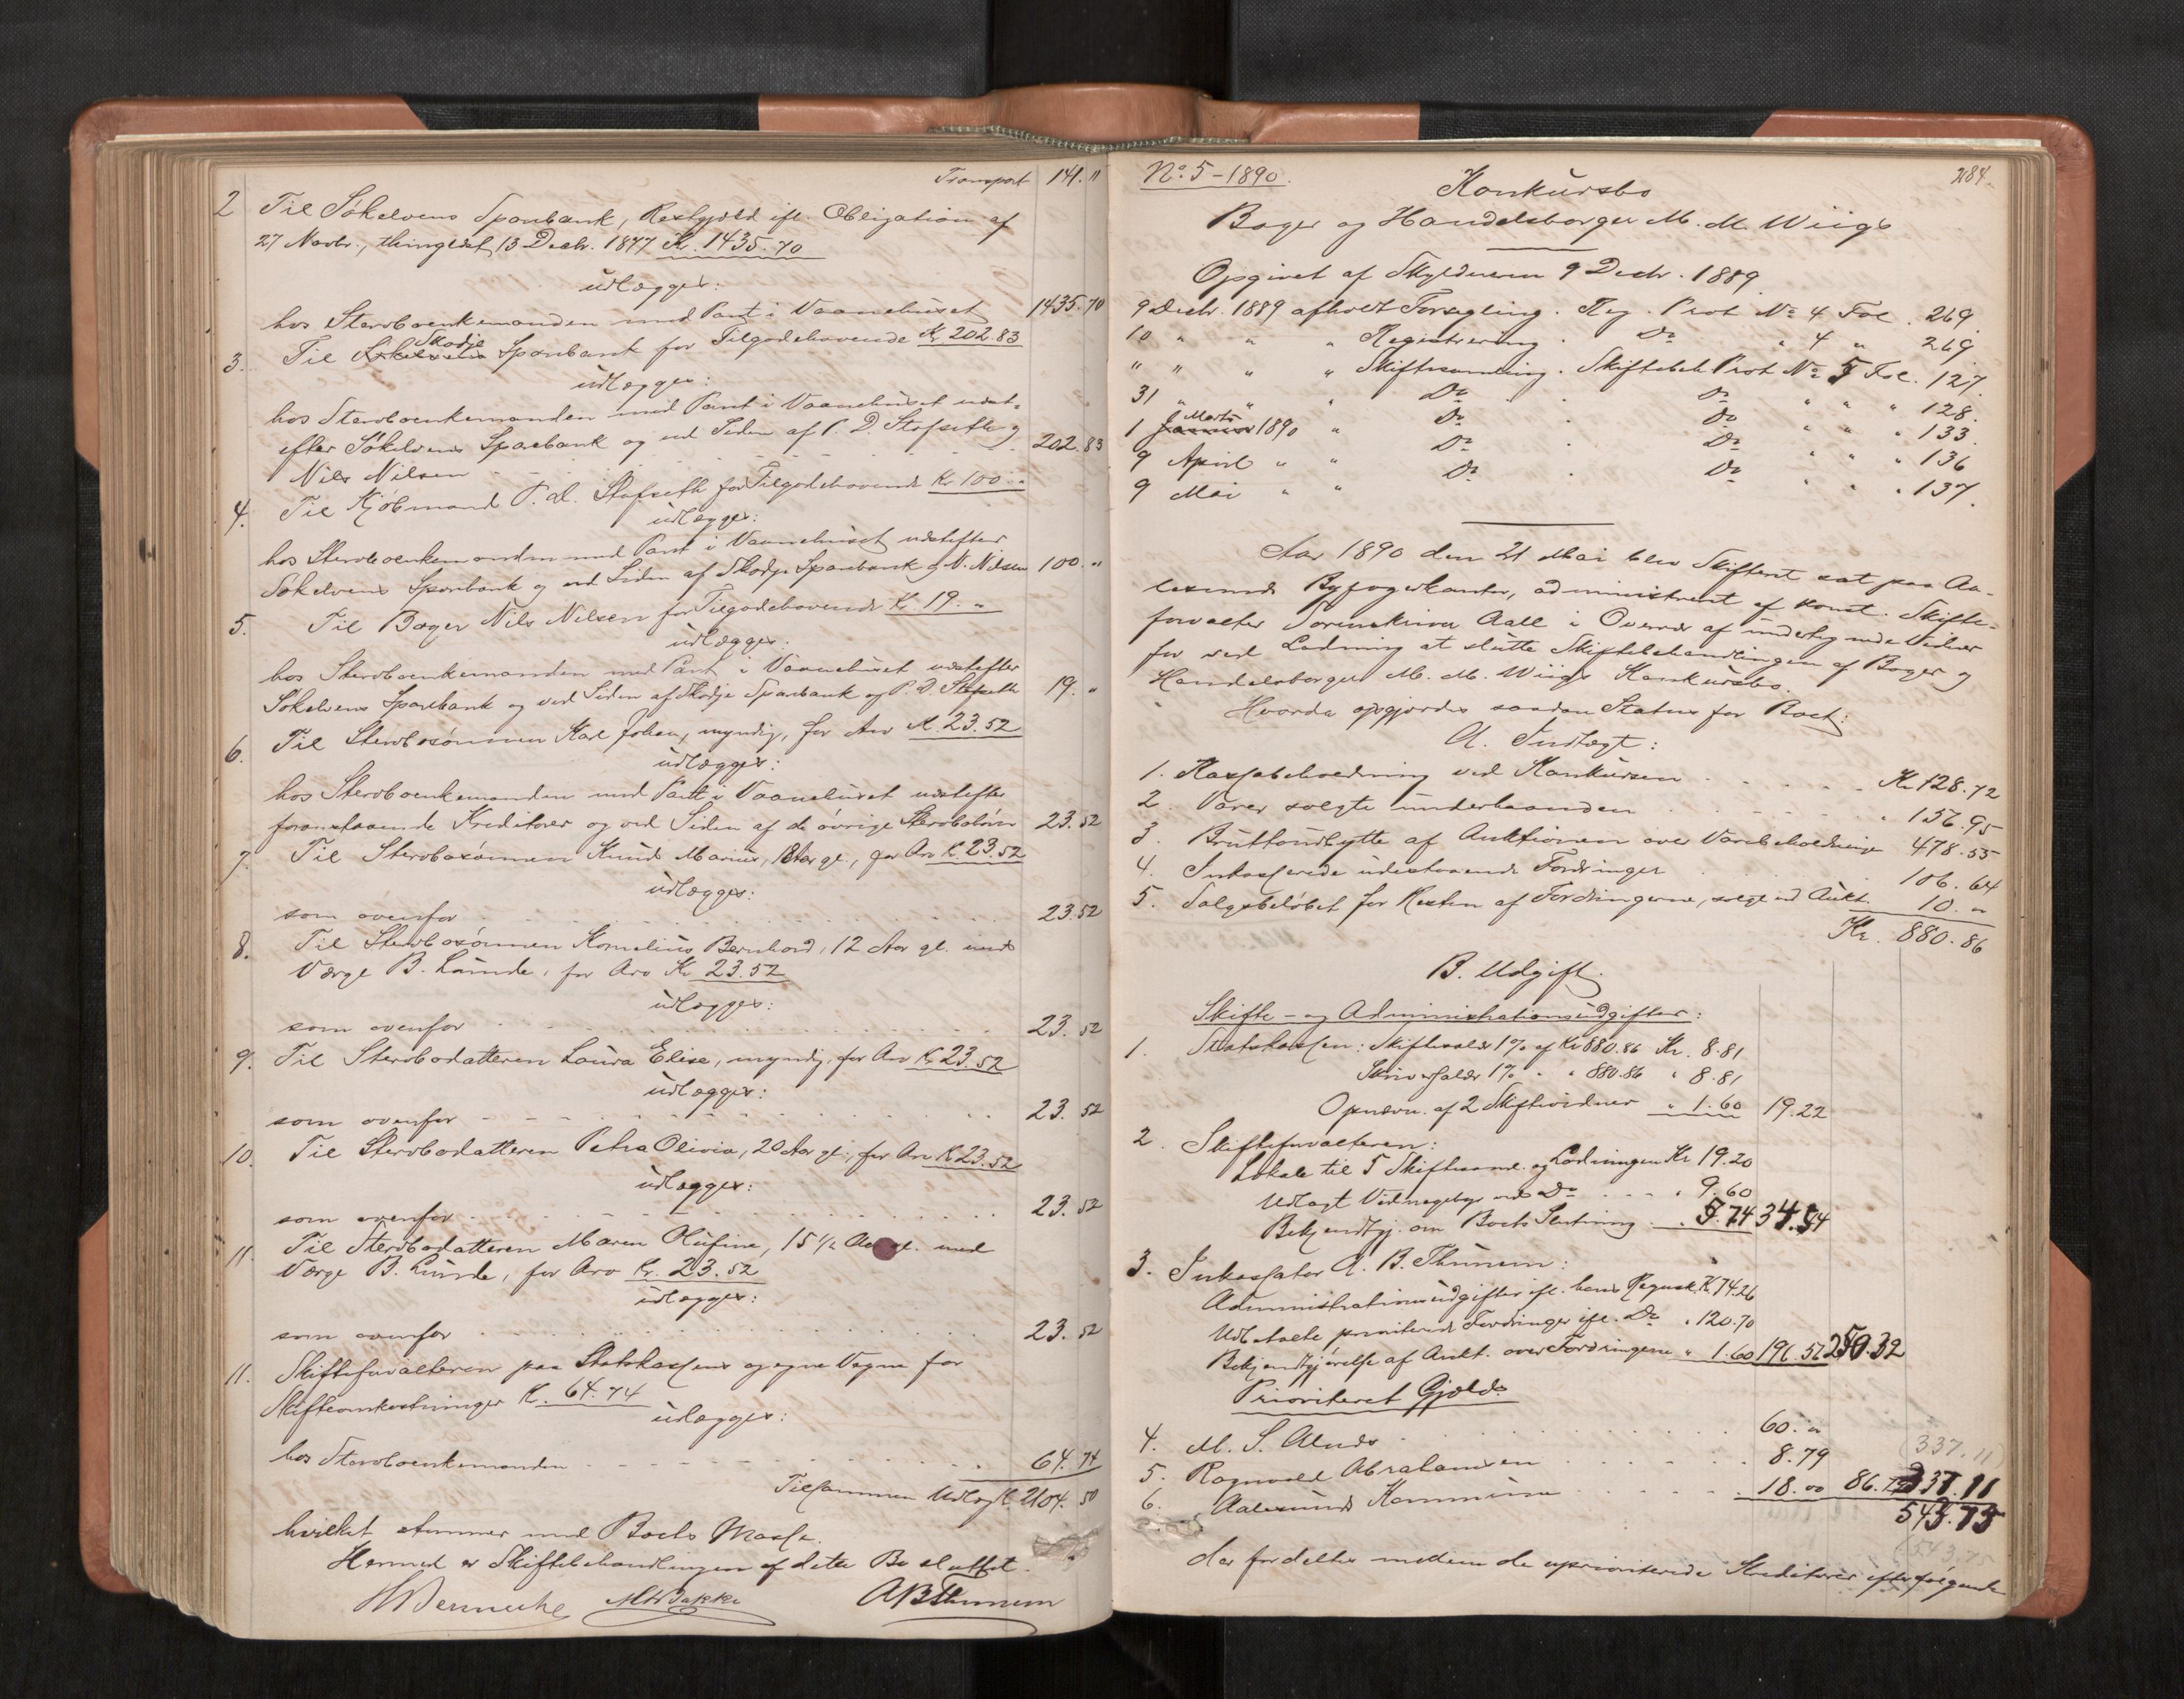 Transport 141. "
2 Til Søkelvens Sparebank, Restgjæld ifl. Obligation af
27 Novbr., thinglæst 13 Decbr. 1877 Kr. 1435.70
udlægges:
hos Stervboenkemanden med Pant i Vaanehuset 1435.70
3. Til Skodje Sparebank for Tilgodehavende Kr 202.83
udlægges:
hos Stervboenkemanden med Pant i Vaanehuset næst
efter Søkelvens Sparebank og ved Siden af P. D. Stafseth og
Nils Nilsen 202.83
4. Til Kjøbmand P. D. Stafseth for Tilgodehavende Kr 100 "
udlægges:
hos Stervboenkemanden med Pant i Vaanehuset næstefter
Søkelvens Sparebank og ved Siden af Skodje Sparebank og N. Nilsen 100. "
5. Til Bager Nils Nilsen for Tilgodehavende Kr. 19. "
udlægges:
hos Stervboenkemanden med Pant i Vaanehuset næstefter
Søkelvens Sparebank og ved Siden af Skodje Sparebank og P. D. Stafseth 19. "
6. Til Stervbosønnen Karl Johan, myndig, for Arv Kr. 23.52
udlægges:
hos Stervboenkemanden med Pant i Vaanehuset næstefter
foranstaaende Kreditorer og ved Siden af de øvrige Stervbobørn 23.52
7. Til Stervbosønnen Knud Marius, Aar gl., for Arv K. 23.52
udlægges:
som ovenfor 23.52
8. Til Stervbosønnen Kornelius Bernhard, 12 Aar gl. med
Værge B. Lunde, for Arv Kr 23.52
udlægges:
som ovenfor 23.52
9. Til Stervbodatteren Laura Elise, myndig, for Arv Kr 23.52
udlægges:
som ovenfor 23.52
10. Til Stervbodatteren Petra Olivia, 20 Aar gl., for Arv K 23.52
udlægges:
som ovenfor 23.52
11. Til Stervbodatteren Maren Olufine, 15 1/2 Aar gl. med
Værge B. Lunde, for Arv Kr. 23.52
udlægges:
som ovenfor 23.52
11. Skifteforvalteren paa Statskassens og egne Vegne for
Skifteomkostninger K. 64.74
udlægges:
hos Stervboenkemanden 64.74
Tilsammen Udlagt 2104.50
hvilket stemmer med Boets Masse.
Hermed er Skiftebehandlingen af dette Bo sluttet.
ABThunem
No. 5 - 1890. 284.
Konkursbo
Bager og Handelsborger M. M. Wiigs
Opgivet af Skyldneren 9 Decbr. 1889
9 Decbr. 1889 afholdt Forsegling. Reg. Prot No 4 Fol. 269.
10 " " " Registrering. Do " 4 " 269.
" " " " Skiftesamling. Skiftebeh. Prot No 5 Fol. 127.
31 " " " Do . Do " " " 128.
1 Januar Marts 1890 " Do . Do " " " 133.
9 April " " Do . Do " " " 136
9 Mai " " Do . Do " " " 137.
Aar 1890 den 21 Mai blev Skifteret sat paa Aa-
lesunds Byfogedkontor, administreret af konst. Skifte-
forvalter Sorenskriver Aall i Overvær af undertegnede Vidner
for ved Lodning at slutte Skiftebehandlingen af Bager og
Handelsborger M. M. Wiigs Konkursbo.
Hvorda opgjordes saadan Status for Boet:
A. Indtægt:
1. Kassabeholdning ved Konkursen Kr 128.72
2. Varer solgte underhaanden " 156.95
3. Bruttoudbytte af Auktionen over Varebeholdninge 478.55
4. Inkasserede udestaaende Fordringer 106.64
5. Salgsbeløbet for Resten af Fordringerne, solgt ved Aukt. 10. "
Kr. 880.86
B. Udgift.
Skifte- og Administrationsudgifter:
1. Statskassen: Skiftesalær 1% af Kr 880.86 Kr. 8.81
Skriversalær 1% " " 880.86 " 8.81
Opnævn. af 2 Skiftevidner " 1.60 19.22
2. Skifteforvalteren:
Lokale til 5 Skiftesaml. og Lodningen Kr 19.20
Udlagt Vidnegebyr ved Do " 9.60
Bekjendtgj. om Boets Slutning " 5.74 34.54
3. Inkassator A. B. Thunem:
Administrationsudgifter ifl. hans Regnsk. K 74.26
Udbetalte prioriterede Fordringer ifl. Do " 120.70
Bekjendtgjørelse af Aukt. over Fordringerne " 1.60 196.56 250.32
Prioriteret Gjæld:
4. M. S. Alnæs 60. "
5. Ragnvald Abrahamsen 8.79 (337.11
6. Aalesunds Kommune 18.00 86.79 337.11
543.75
(543,75
der fordeltes mellem de uprioriterede Kreditorer efterfølgende